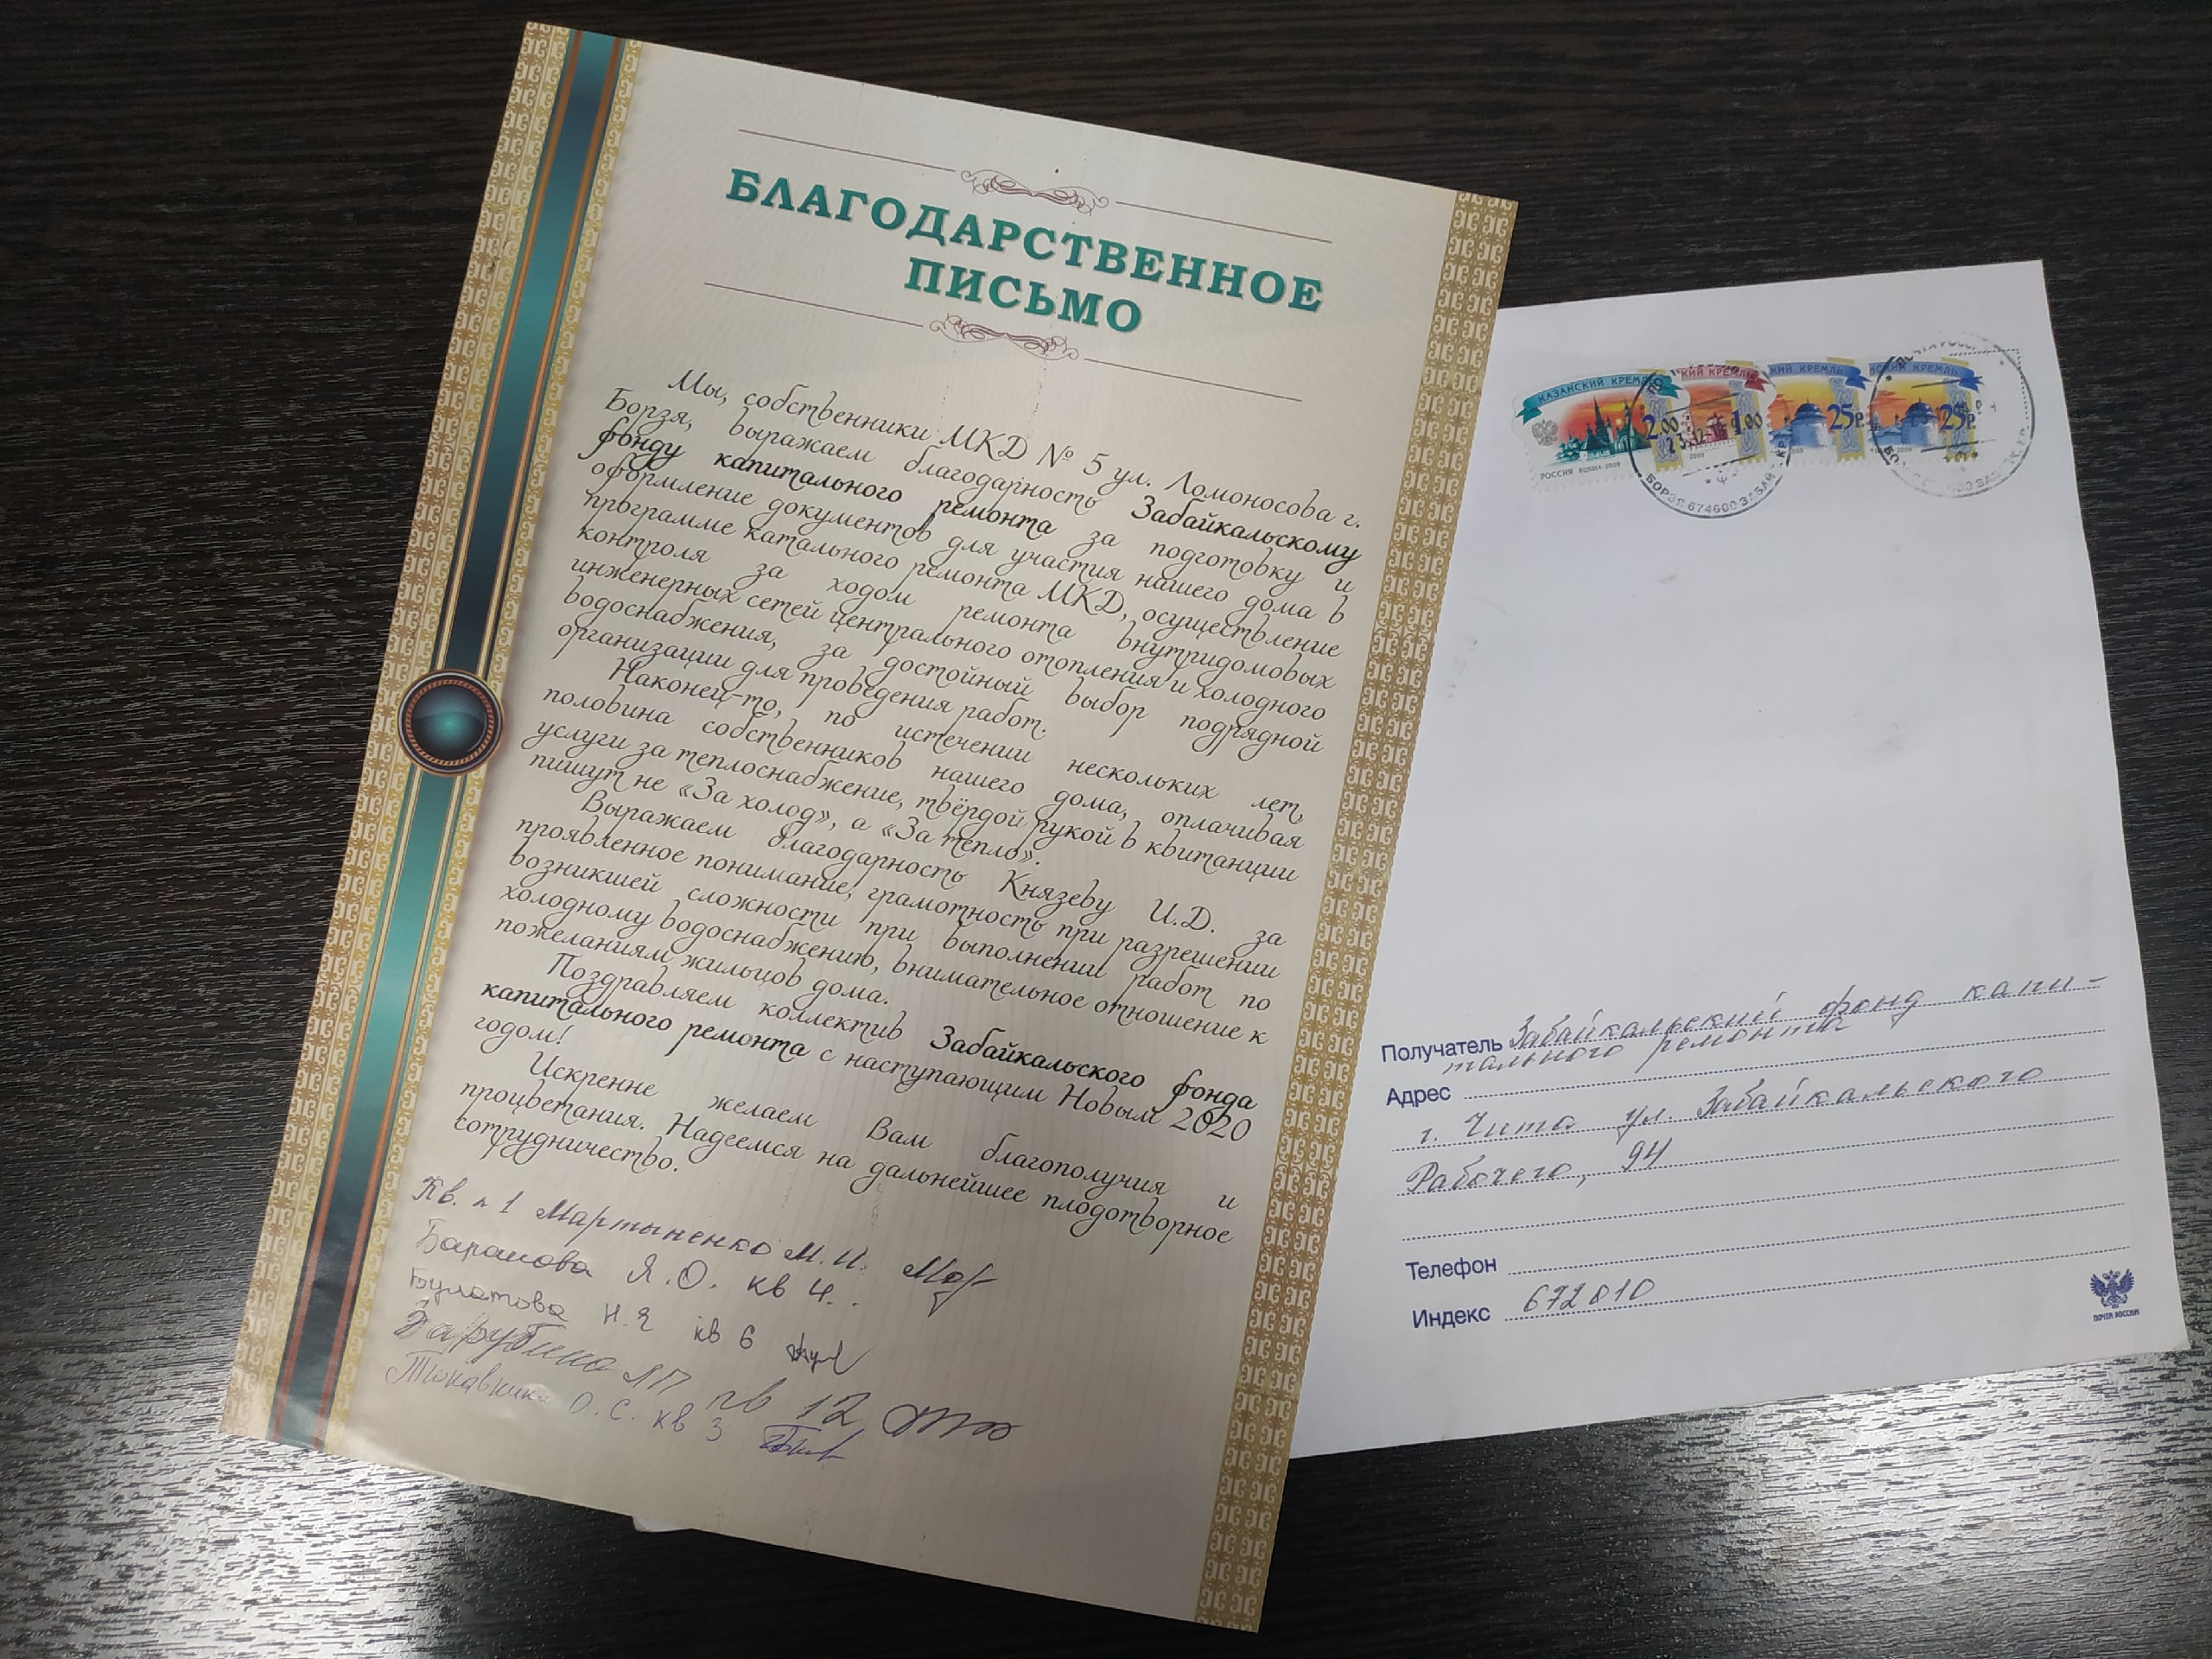 БЛАГОДАРСТВЕННОЕ
ПИСЬМО
Мы, собственники МКД № 5 ул. Ломоносова г.
Борзя, выражаем благодарность Забайкальскому
фонду капитального ремонта за подготовку и
оформление документов для участия нашего дома в
программе катального ремонта МКД, осуществление
контроля за ходом ремонта внутридомовых
инженерных сетей центрального отопления и холодного
водоснабжения, за достойный выбор подрядной
организации для проведения работ.
Наконец-то, по истечении нескольких лет,
половина собственников нашего дома, оплачивая
услуги за теплоснабжение, твёрдой рукой в квитанции
пишут не «За холод», а «За тепло».
Выражаем благодарность Князеву И.Д. за
проявленное понимание, грамотность при разрешении
возникшей сложности при выполнении работ по
холодному водоснабжению, внимательное отношение к
пожеланиям жильцов дома.
Поздравляем коллектив Забайкальского фонда
капитального ремонта с наступающим Новым 2020
годом!
Искренне желаем Вам благополучия и
процветания. Надеемся на дальнейшее плодотворное
сотрудничество.
Кв. 1 Мартыненко М.И.
Баранова Я.О. кв 4.
Булатова Н.Я кв 6
Зарубина кв 12
О.С. кв 3
КАЗАНСКИЙ КРЕМЛЬ
2.00
РОССИЯ RUSSIA-2009
КИЙ КРЕМЛЬ
1.00
2009
КИЙ КРЕМЛЬ
25р
2009
КРЕМЛЬ
25р
БОРЗЯ 674600 ЗАБАЙ
Получатель Забайкальский фонд капи-
тального ремонта
Адрес
г. Чита ул. Забайкальского
Рабочего, 94
Телефон
Индекс 672010
ПОЧТА РОССИИ